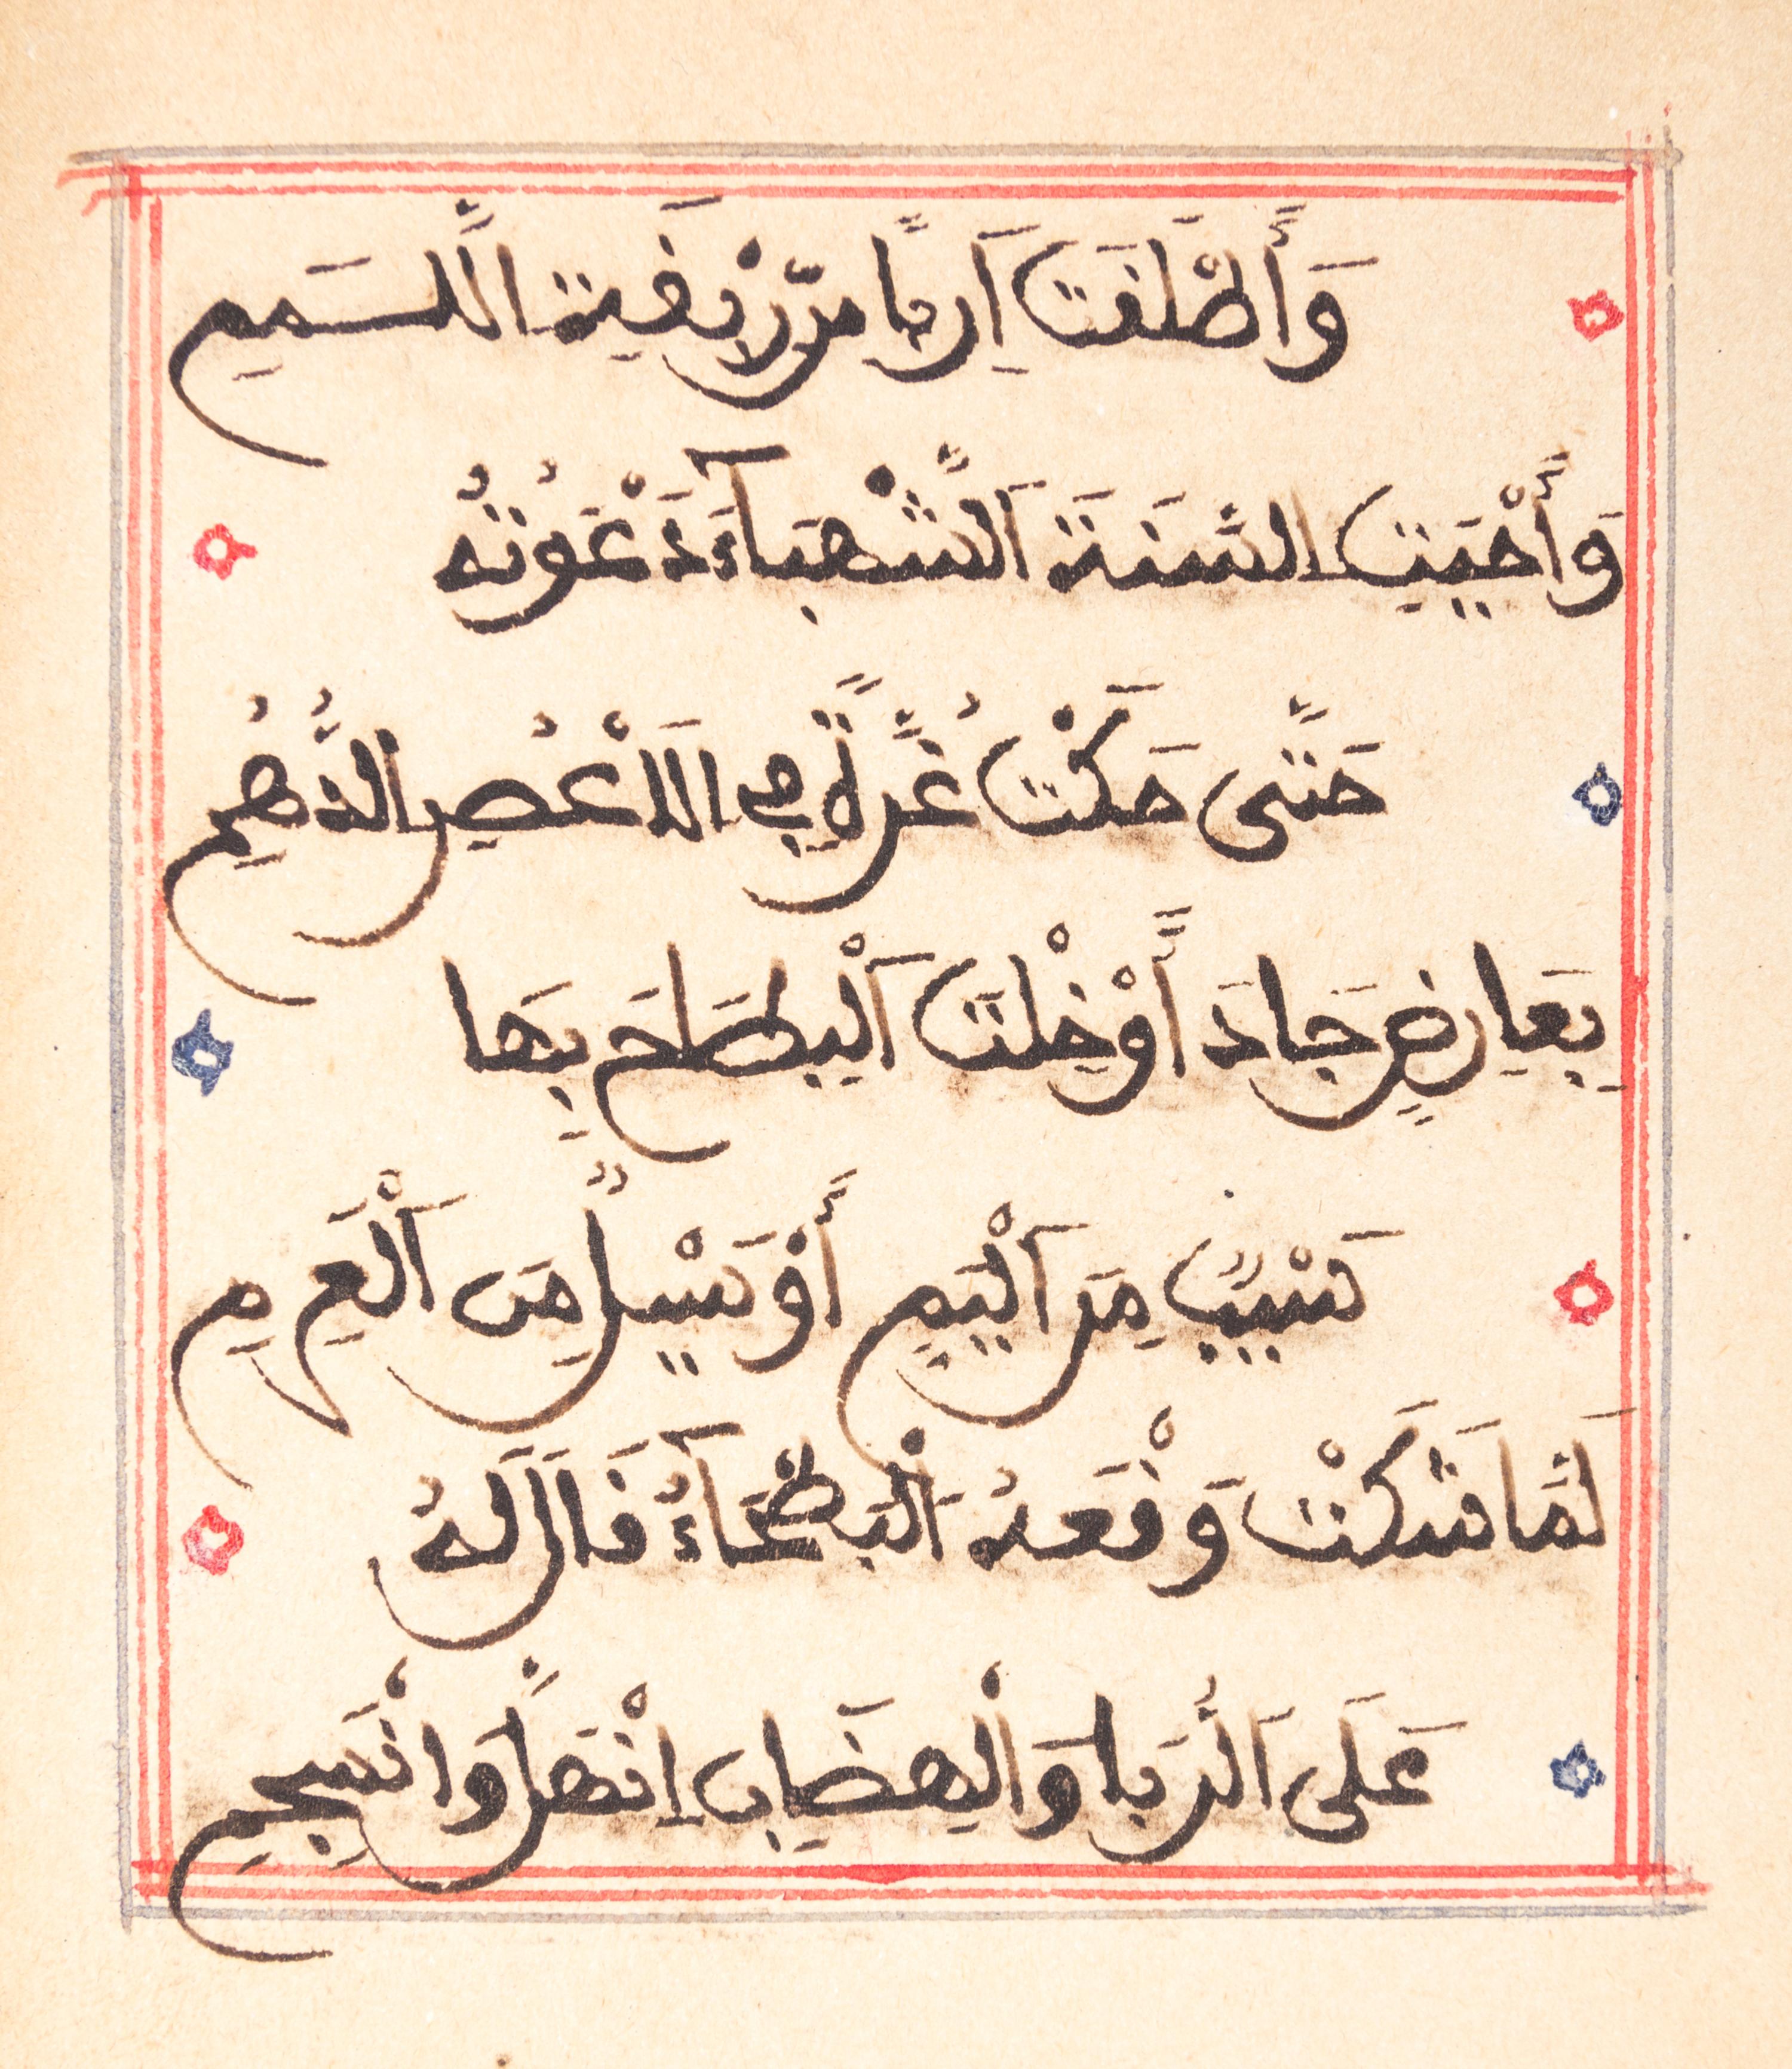 وَأَطْلَقَتْ أَرِبًا مِّن رِّبْقَةِ اللَّمَمِ
وَأَحْيَتِ السَّنَةَ الشَّهْبَاءَ دَعْوَتُهُ
حَتَّى حَكَتْ غُرَّةً فِي الَاعْصُرِ الدُّهُمِ
بِعَارِضٍ جَادَ أَوْ خِلْتَ الْبِطَاحَ بِهَا
سَيْبٌ مِنَ الْيَمِّ أَوْ سَيْلٌ مِنَ الْعَرِمِ
لَمَّا شَكَتْ وَقْعَهُ الْبَطْحَاءُ قَالَ لَهُ
عَلَى الرُّبَا وَالْهِضَابِ انْهَلْ وَانْسَجِمِ